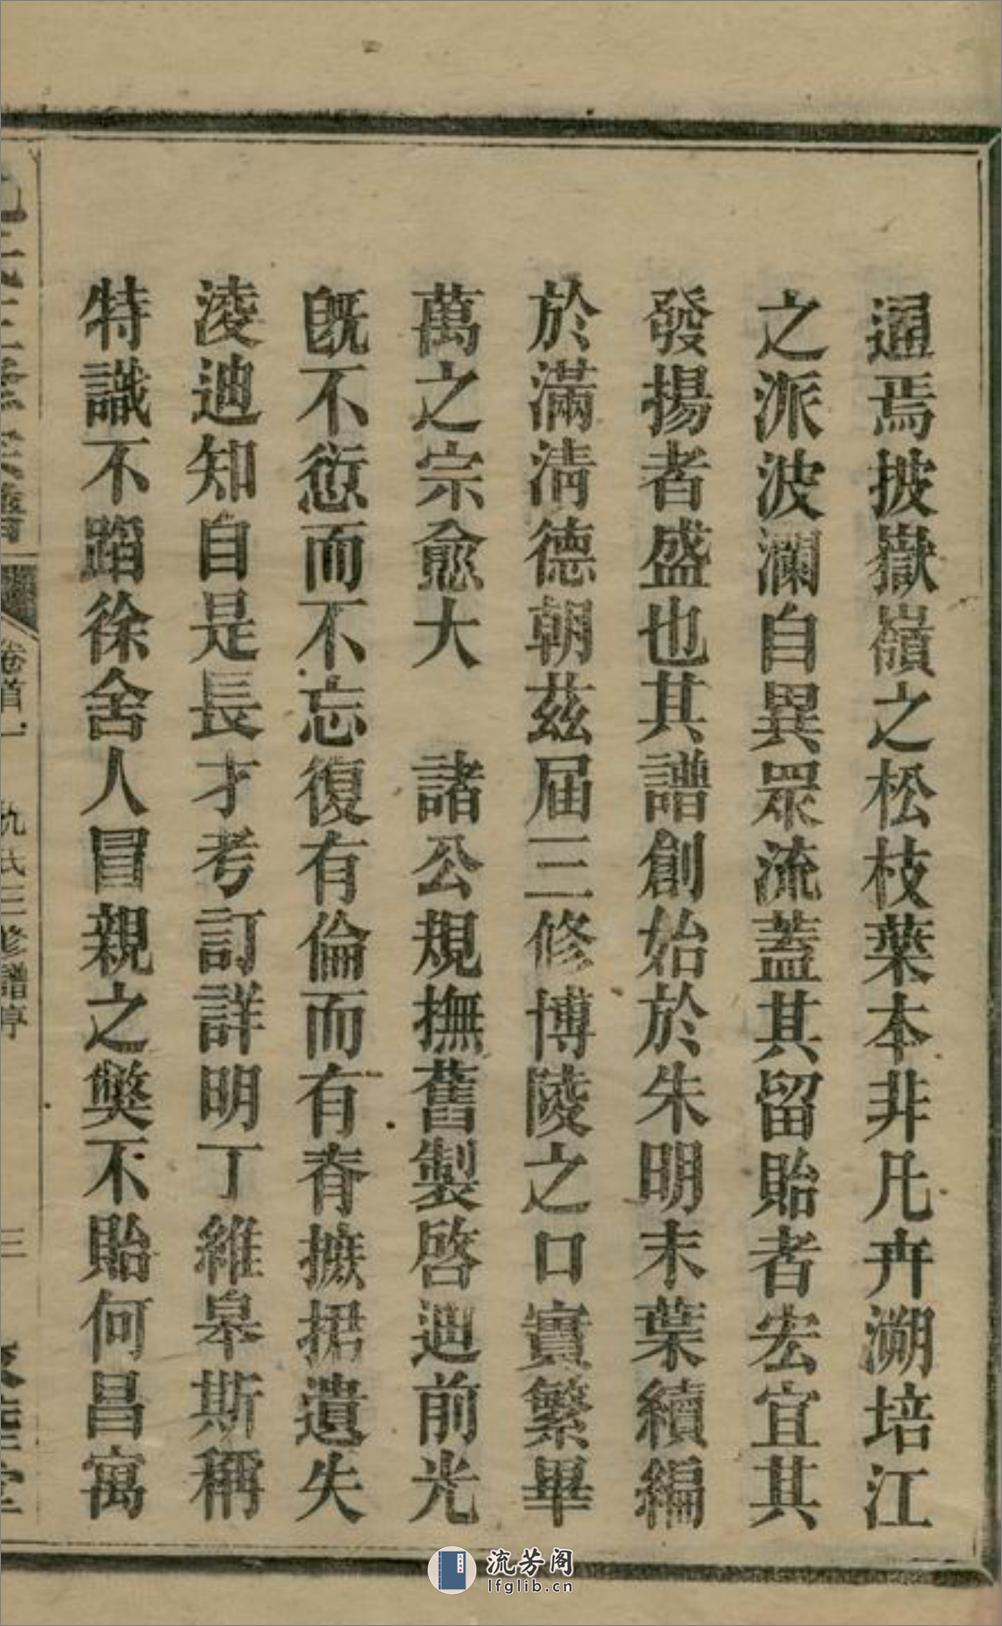 通焉披嶽嶺之松枝葉本非凡卉溯培江
之派波瀾自異眾流蓋其留貽者宏宜其
發揚者盛也其譜創始於朱明末葉續編
於滿淸德朝茲屆三修博陵之口實繁畢
萬之宗愈大 諸公規撫舊製啓迪前光
旣不愆而不忘復有倫而有脊摭捃遺失
淩迪知自是長才考訂詳明丁維皋斯稱
特識不蹈徐舍人冒親之獘不貽何昌寓
卷首一
仇氏三修譜序
三
流芳阁
lfglib.cn